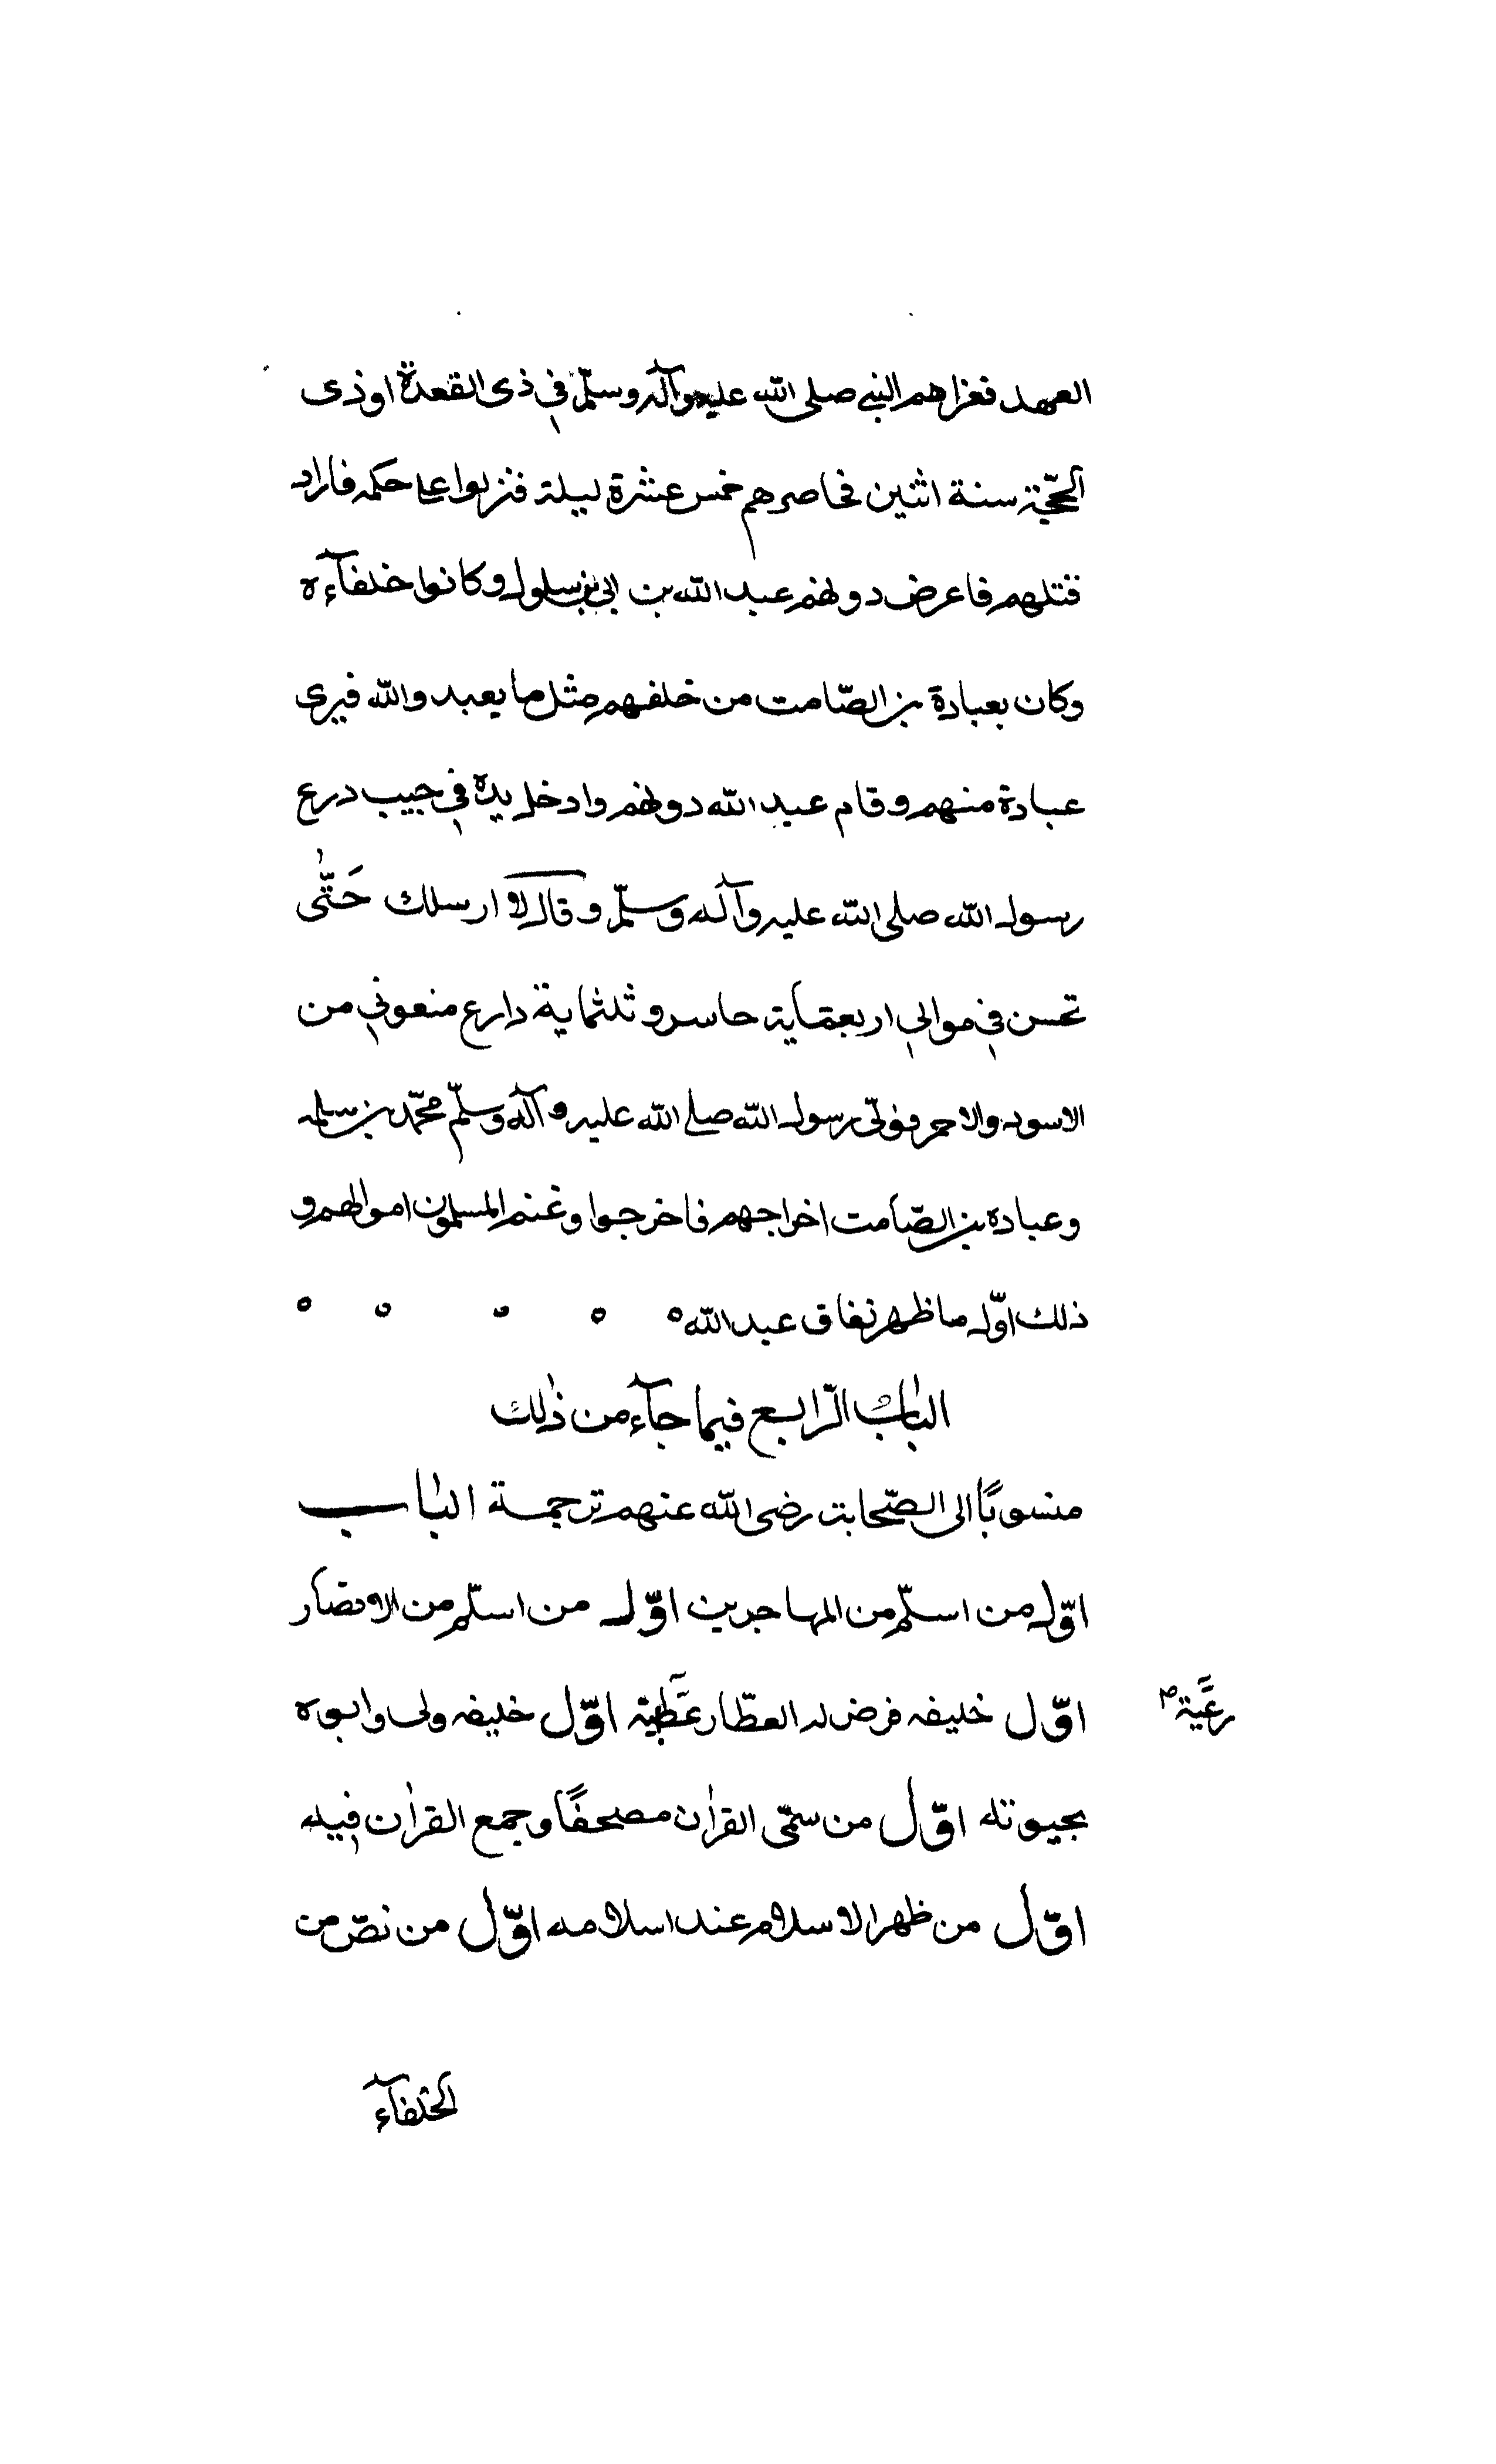 العهد فغزاهم النبي صلى الله عليه وآله وسلّم في ذى القعدة او ذى
الحجّة سنة اثنين فحاصرهم خمس عشرة ليلة فنزلوا على حكمه فاراد
قتلهم فاعرض دونهم عبد الله بن ابي بن سلول وكانوا خلفآءه
وكان بعبادة بن الصّامت من خلفهم مثل ما يعبد والله فيرى
عبادة منهم وقام عبد الله دونهم وادخل يده في جيب درع
رسول الله صلى الله عليه وآله وسلّم وقال لا ارسلك حَتّٰى
تحسن في موالي اربعماية حاسر و ثلثماية دارع منعوني من
الاسود والاحمر فولّى رسول الله صلى الله عليه وآله وسلّم محمّد بن سلمه
وعباده بن الصّامت اخراجهم فاخرجوا وغنم المسلمون اموالهم و
ذلك اوّل ما ظهر نفاق عبد الله ه ه ه ه ه
الباب الرّابع فيما جآء من ذٰلك
منسوبًا الى الصّحابة رضى الله عنهم ترجمة الباب
اوّل من اسلّم من المهاجرين اوّل من اسلّم من الانصار
اوّل خليفه فرض له العطّار عَطيّة اوّل خليفه ولى وابوه
رعَيّة ص
بحيوته اوّل من سمّى القرٰان مصحفًا وجمع القرٰان فيه
اوّل من ظهر الاسلام عند اسلامه اوّل من نصّ من
الخلفآء